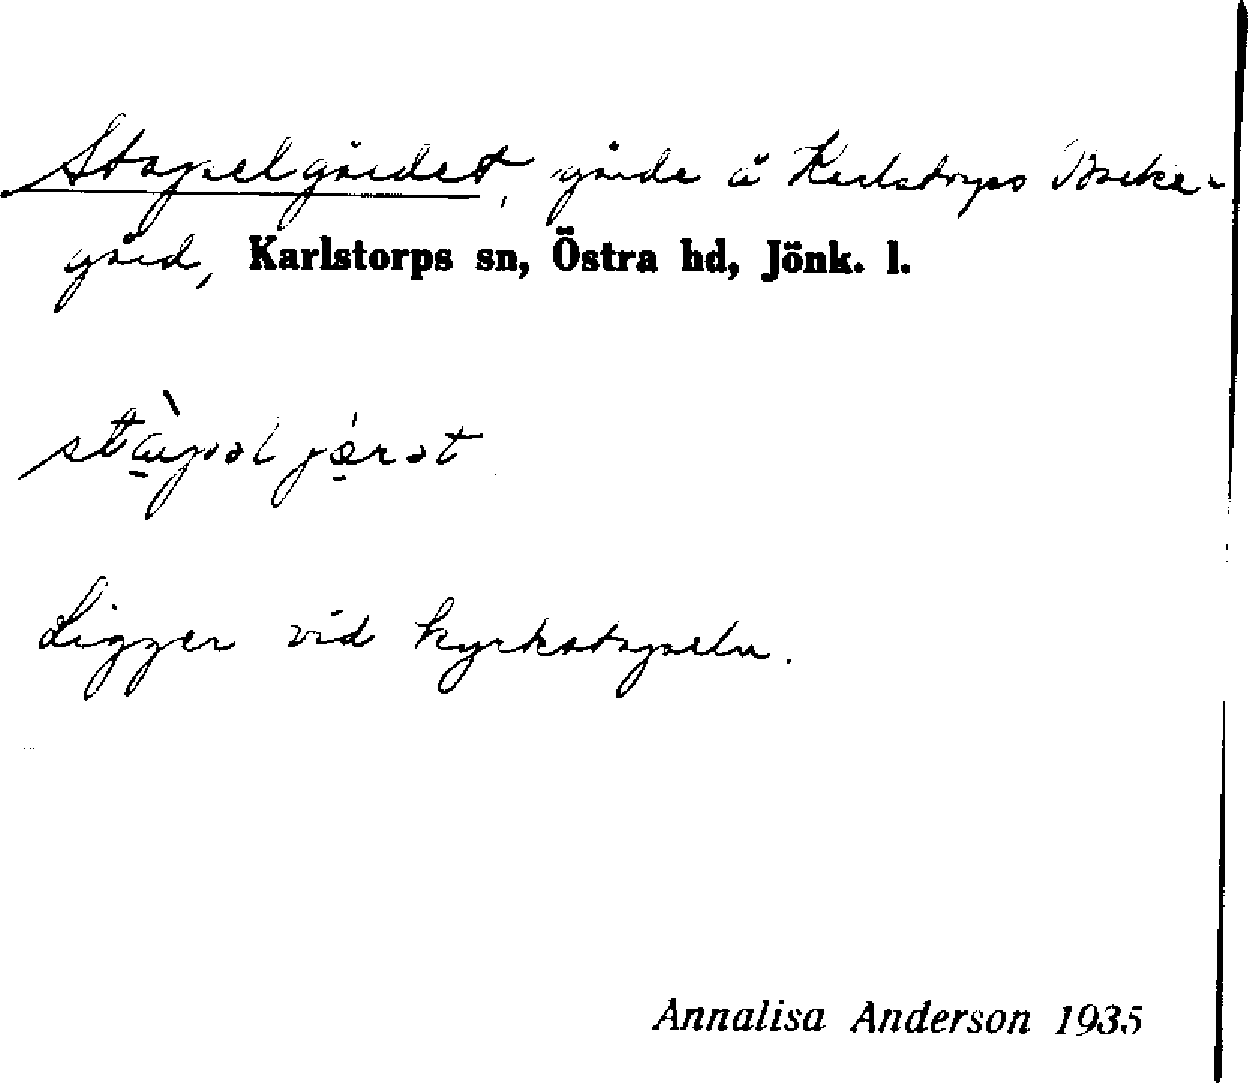 Stapelgärdet, gärde å Karlstorps Backe-
gård, Karlstorps sn, Östra hd, Jönk. l.
stàpəl järət
Ligger vid kyrkstapeln.
Annalisa Anderson 1935